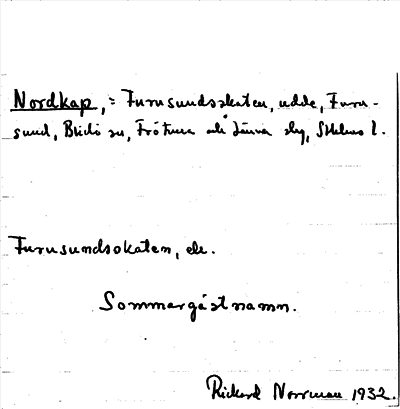 Nordkap, = Furusundsskaten, udde, Furu-
sund, Blidö sn, Frötuna och Länna slg, Sthlms l.
Furusundsskaten, ele.
Sommargästnamn.
Rickard Norrman 1932.